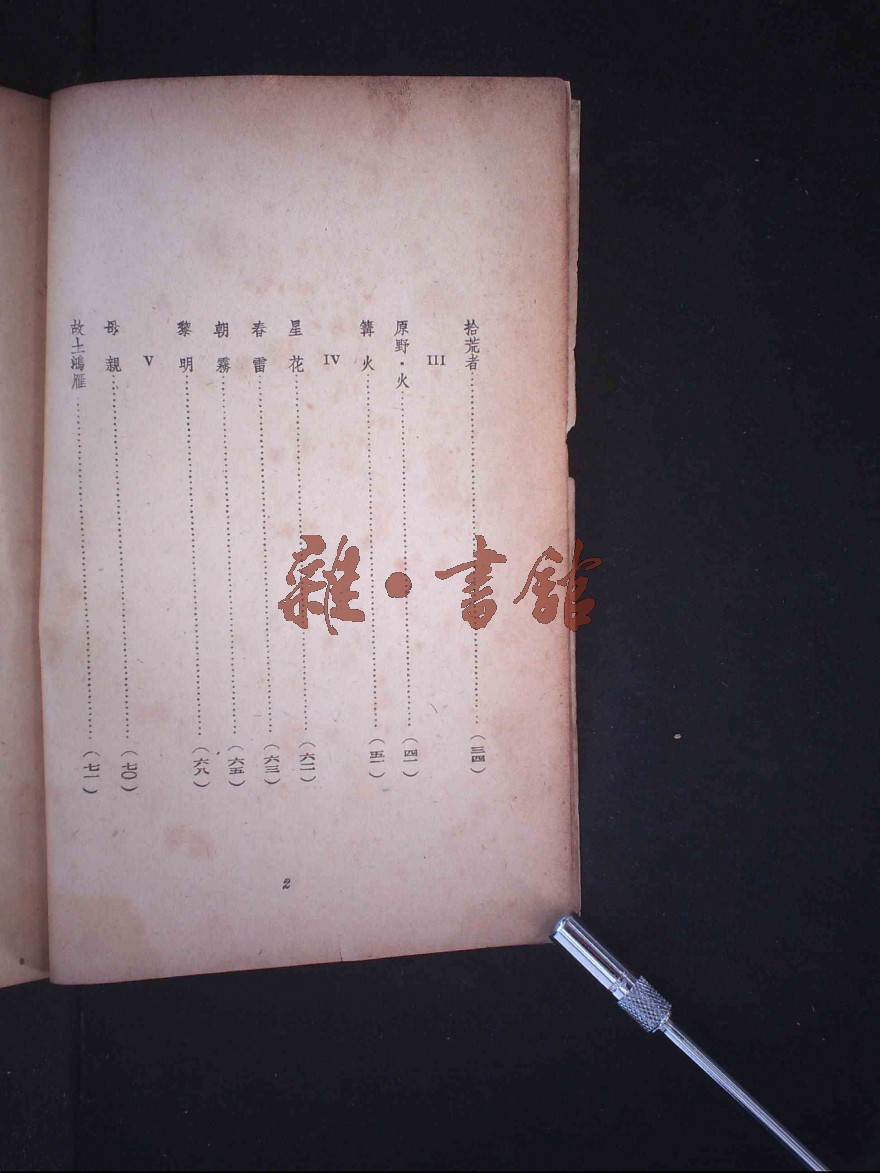 拾荒者……………………(三四)
III
原野・火……………………(四一)
篝火……………………(五一)
IV
星花……………………(六二)
春雷……………………(六三)
朝霧……………………(六五)
黎明……………………(六八)
V
母親……………………(七〇)
故土鴻雁……………………(七一)
2
雜・書館